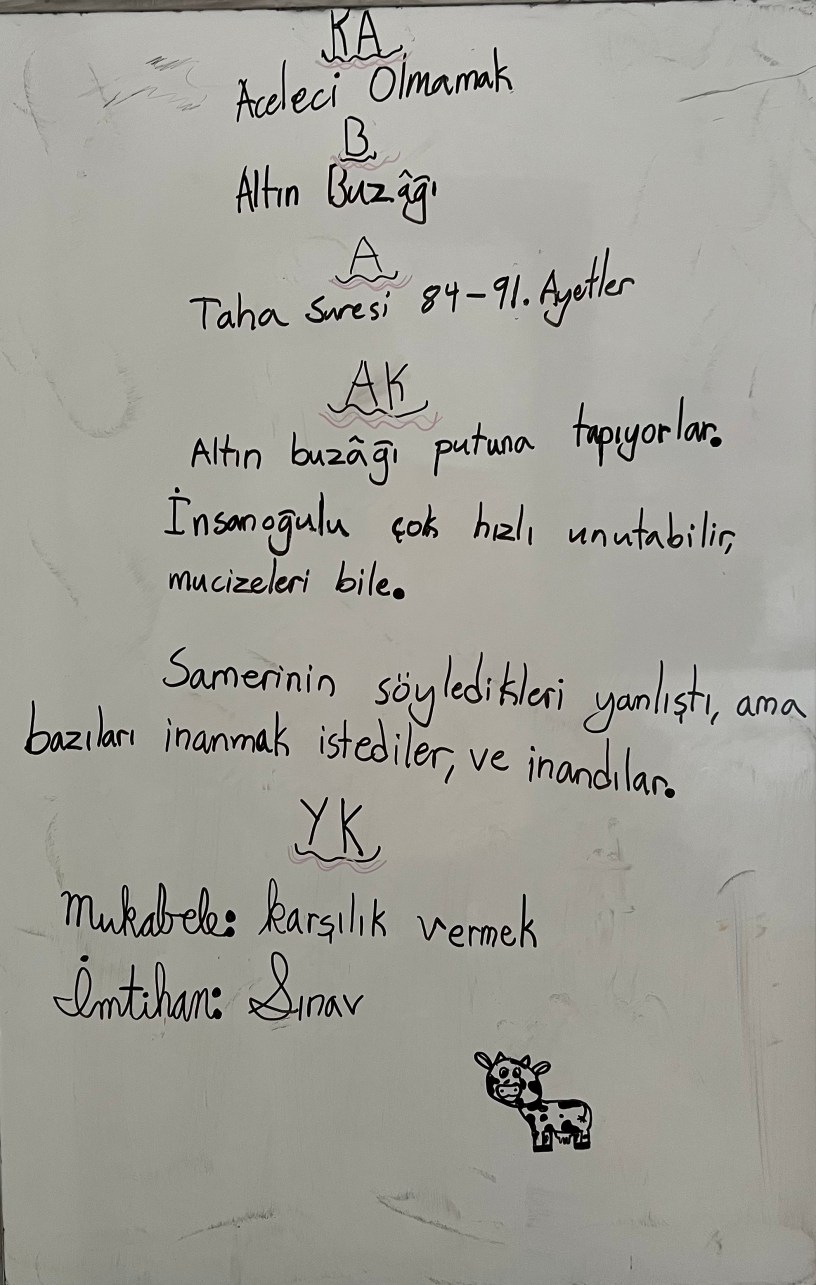 KA
Aceleci Olmamak
B
Altın Buzâğı
A
Taha Suresi 84-91. Ayetler
AK
Altın buzâğı putuna tapıyorlar.
İnsanoğulu çok hızlı unutabilir,
mucizeleri bile.
Samerinin söyledikleri yanlıştı, ama
bazıları inanmak istediler, ve inandılar.
YK
Mukabele: karşılık vermek
İmtihan: Sınav